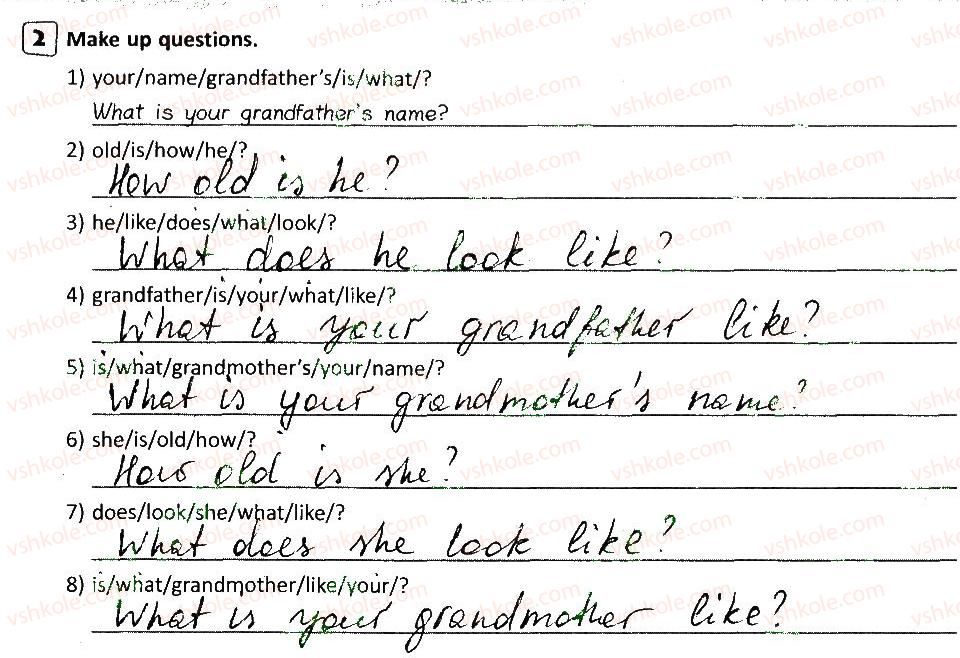 2 Make up questions.
1) your/name/grandfather's/is/what/?
What is your grandfather's name?
2) old/is/how/he/?
How old is he?
3) he/like/does/what/look/?
What does he look like?
4) grandfather/is/your/what/like/?
What is your grandfather like?
5) is/what/grandmother's/your/name/?
What is your grandmother's name?
6) she/is/old/how/?
How old is she?
7) does/look/she/what/like/?
What does she look like?
8) is/what/grandmother/like/your/?
What is your grandmother like?
vshkole.com